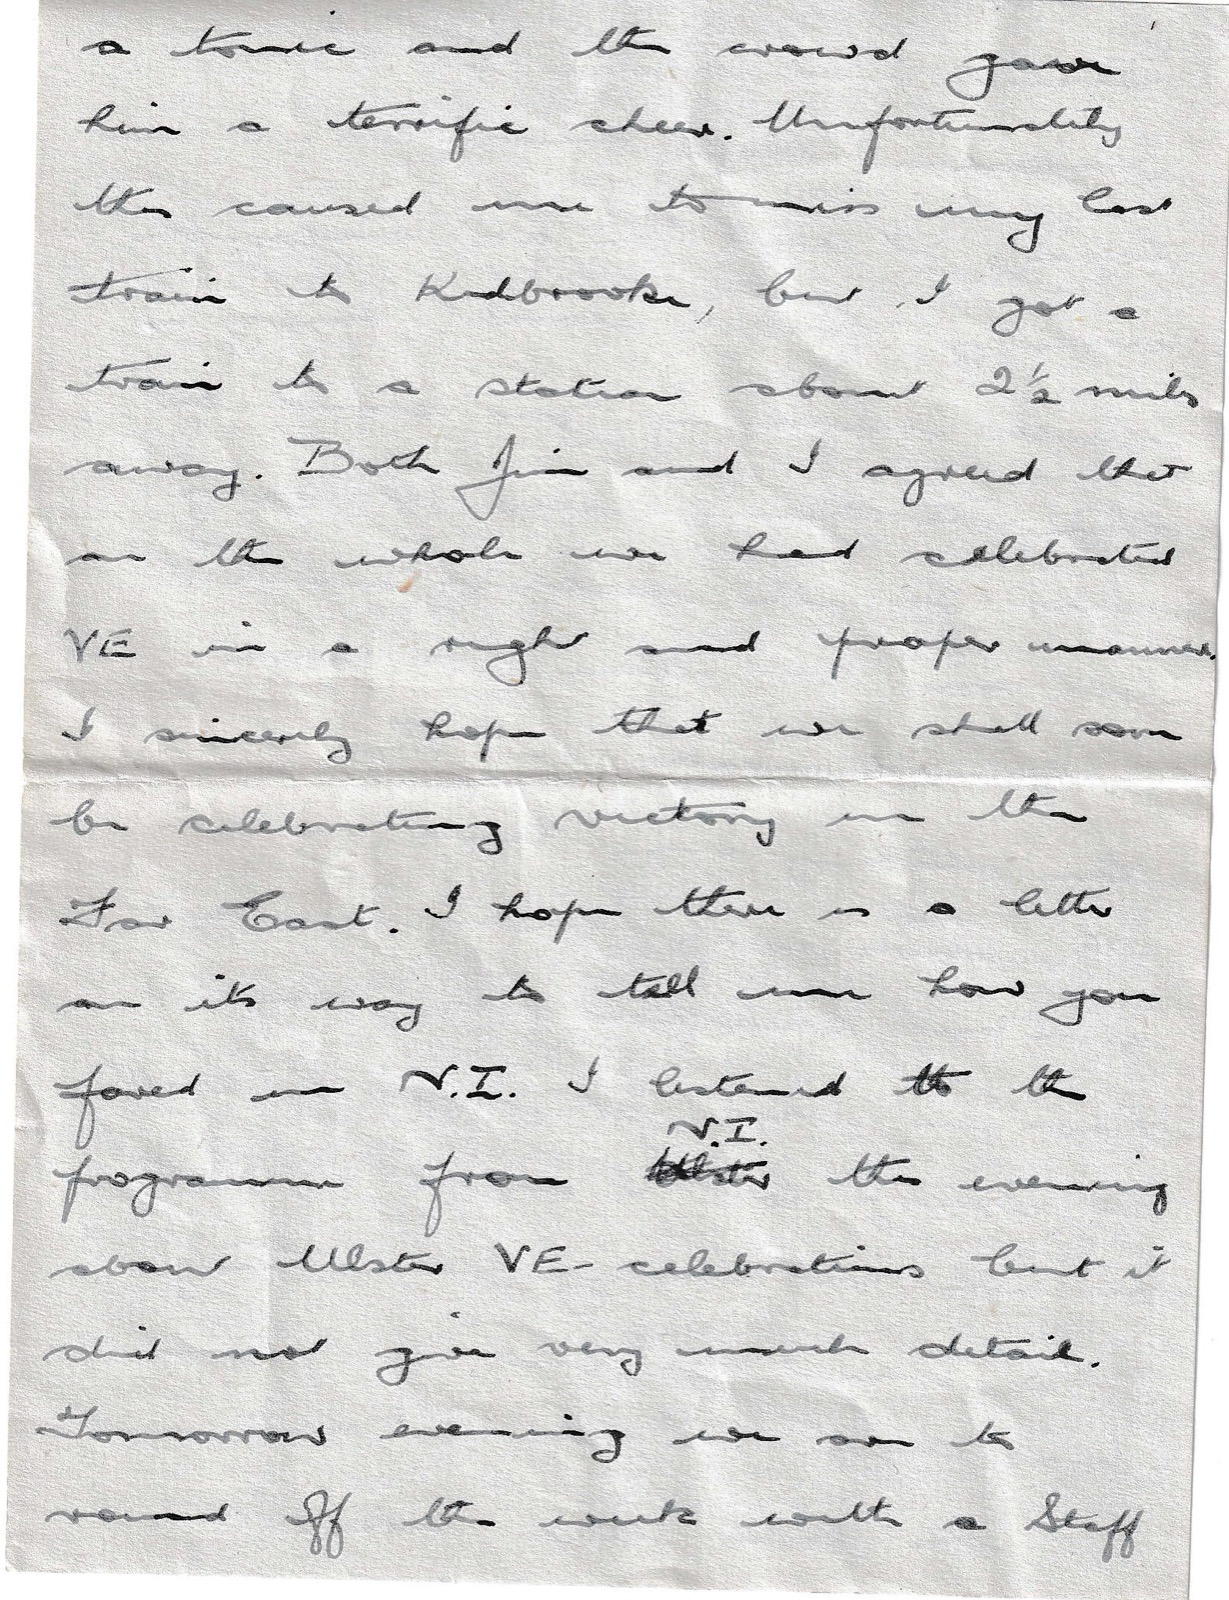 a tonic and the crowd gave
him a terrific cheer. Unfortunately
this caused me to miss my last
train to Kidbrooke, but I got a
train to a station about 2½ miles
away. Both Jim and I agreed that
on the whole we had celebrated
VE in a right and proper manner.
I sincerely hope that we shall soon
be celebrating victory in the
Far East. I hope there is a letter
on its way to tell me how you
fared in N.I. I listened to the
N.I.
programme from Ulster this evening
about Ulster VE-celebrations but it
did not give very much detail.
Tomorrow evening we are to
round off the week with a Staff